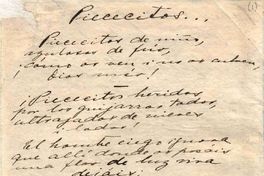 Piececitos...
(1)
Piececitos de niño,
azulosos de frío,
¡cómo os ven i no os cubren,
Dios mío!
¡Piececitos heridos
por los guijarros todos,
ultrajados de nieves
i lodos!
El hombre ciego ignora
que allí donde os posáis
una flor de luz viva
dejáis;